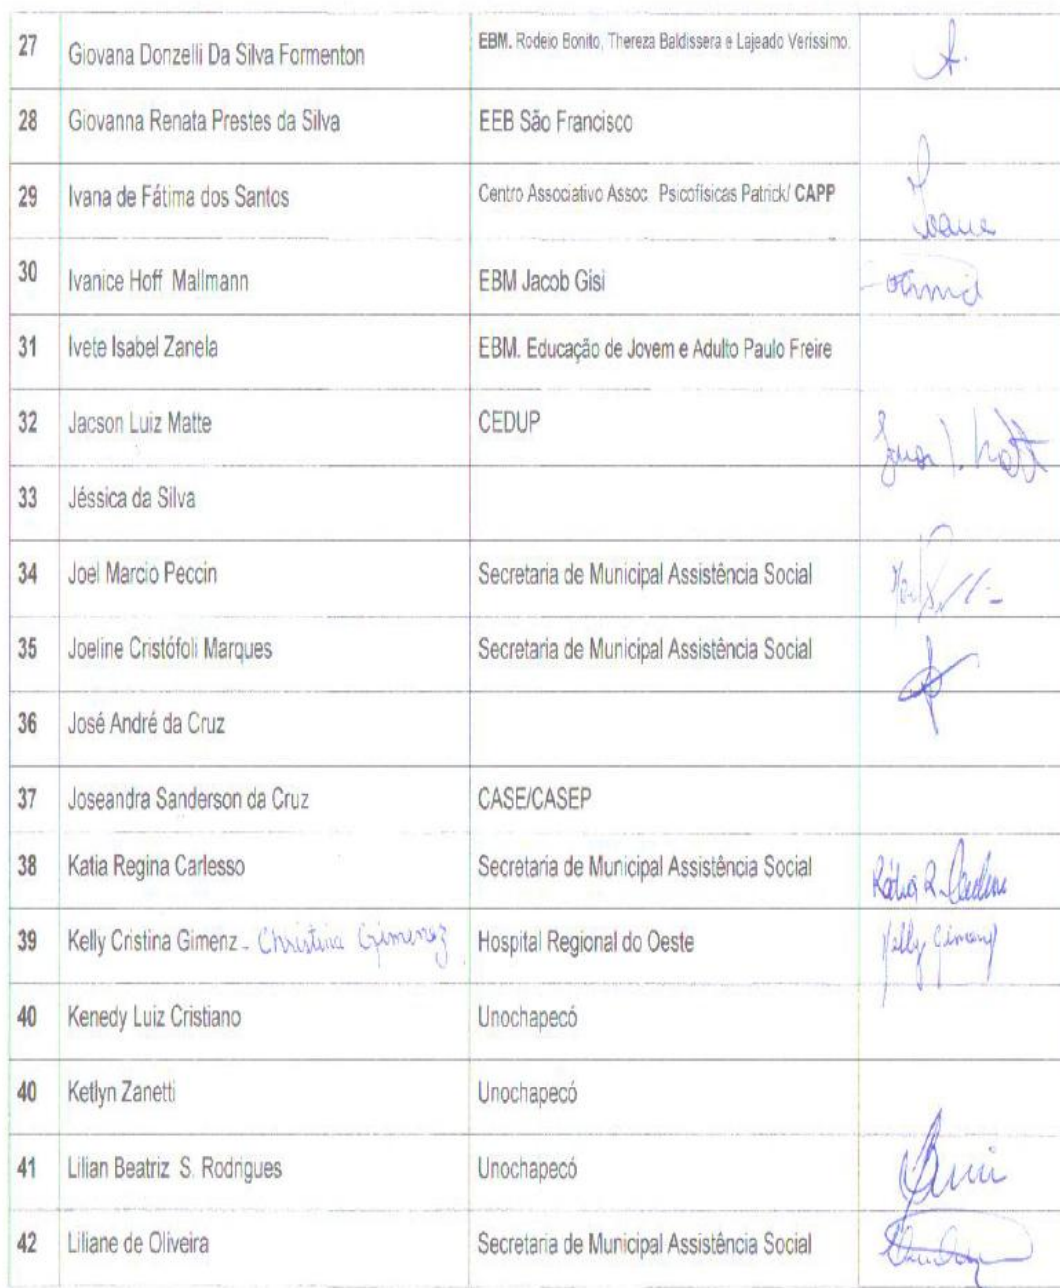 27 Giovana Donzelli Da Silva Formenton EBM. Rodeio Bonito, Thereza Baldissera e Lajeado Veríssimo.
28 Giovanna Renata Prestes da Silva EEB São Francisco
29 Ivana de Fátima dos Santos Centro Associativo Assoc. Psicofísicas Patrick/ CAPP Ivana
30 Ivanice Hoff Mallmann EBM Jacob Gisi
31 Ivete Isabel Zanela EBM. Educação de Jovem e Adulto Paulo Freire
32 Jacson Luiz Matte CEDUP
33 Jéssica da Silva
34 Joel Marcio Peccin Secretaria de Municipal Assistência Social
35 Joeline Cristófoli Marques Secretaria de Municipal Assistência Social
36 José André da Cruz
37 Joseandra Sanderson da Cruz CASE/CASEP
38 Katia Regina Carlesso Secretaria de Municipal Assistência Social
39 Kelly Cristina Gimenz - Christina Gimenez Hospital Regional do Oeste Kelly Gimenez
40 Kenedy Luiz Cristiano Unochapecó
40 Ketlyn Zanetti Unochapecó
41 Lilian Beatriz S. Rodrigues Unochapecó
42 Liliane de Oliveira Secretaria de Municipal Assistência Social